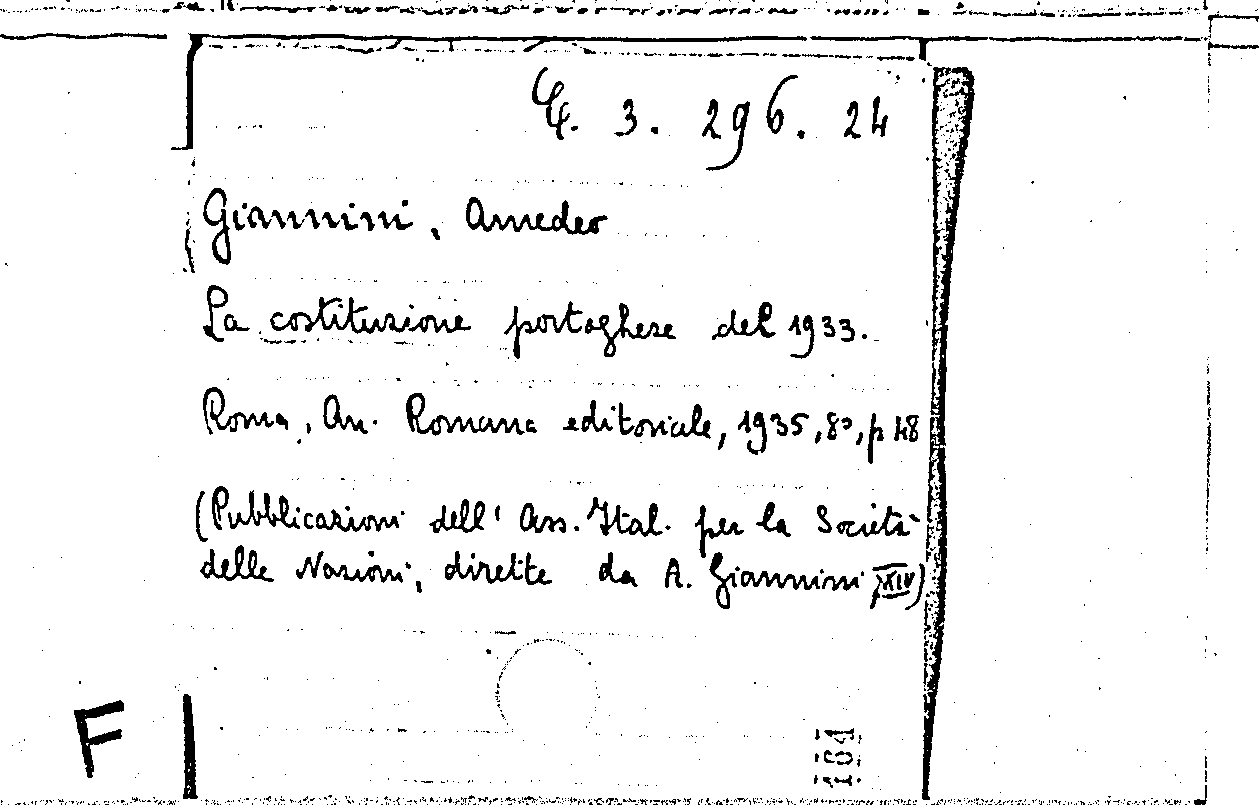 4. 3. 296. 24
Giannini, Amedeo
La costituzione portoghese del 1933.
Roma, An. Romana editoriale, 1935, 8°, p 48
(Pubblicazioni dell' Ass. Ital. per la Società
delle Nazioni, dirette da A. Giannini XIV)
F
104